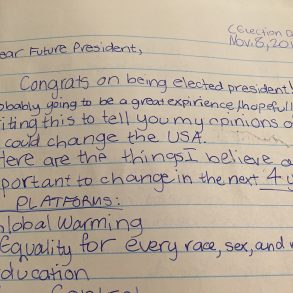 (Election D
Nov. 8, 201
ear Future President,
Congrats on being elected president!
obably going to be a great expirience, (hopefull
iting this to tell you my opinions o
could change the USA.
Here are the things I believe a
portant to change in the next 4 y
PLATFORMS:
lobal Warming
Equality for every race, sex, and
ducation